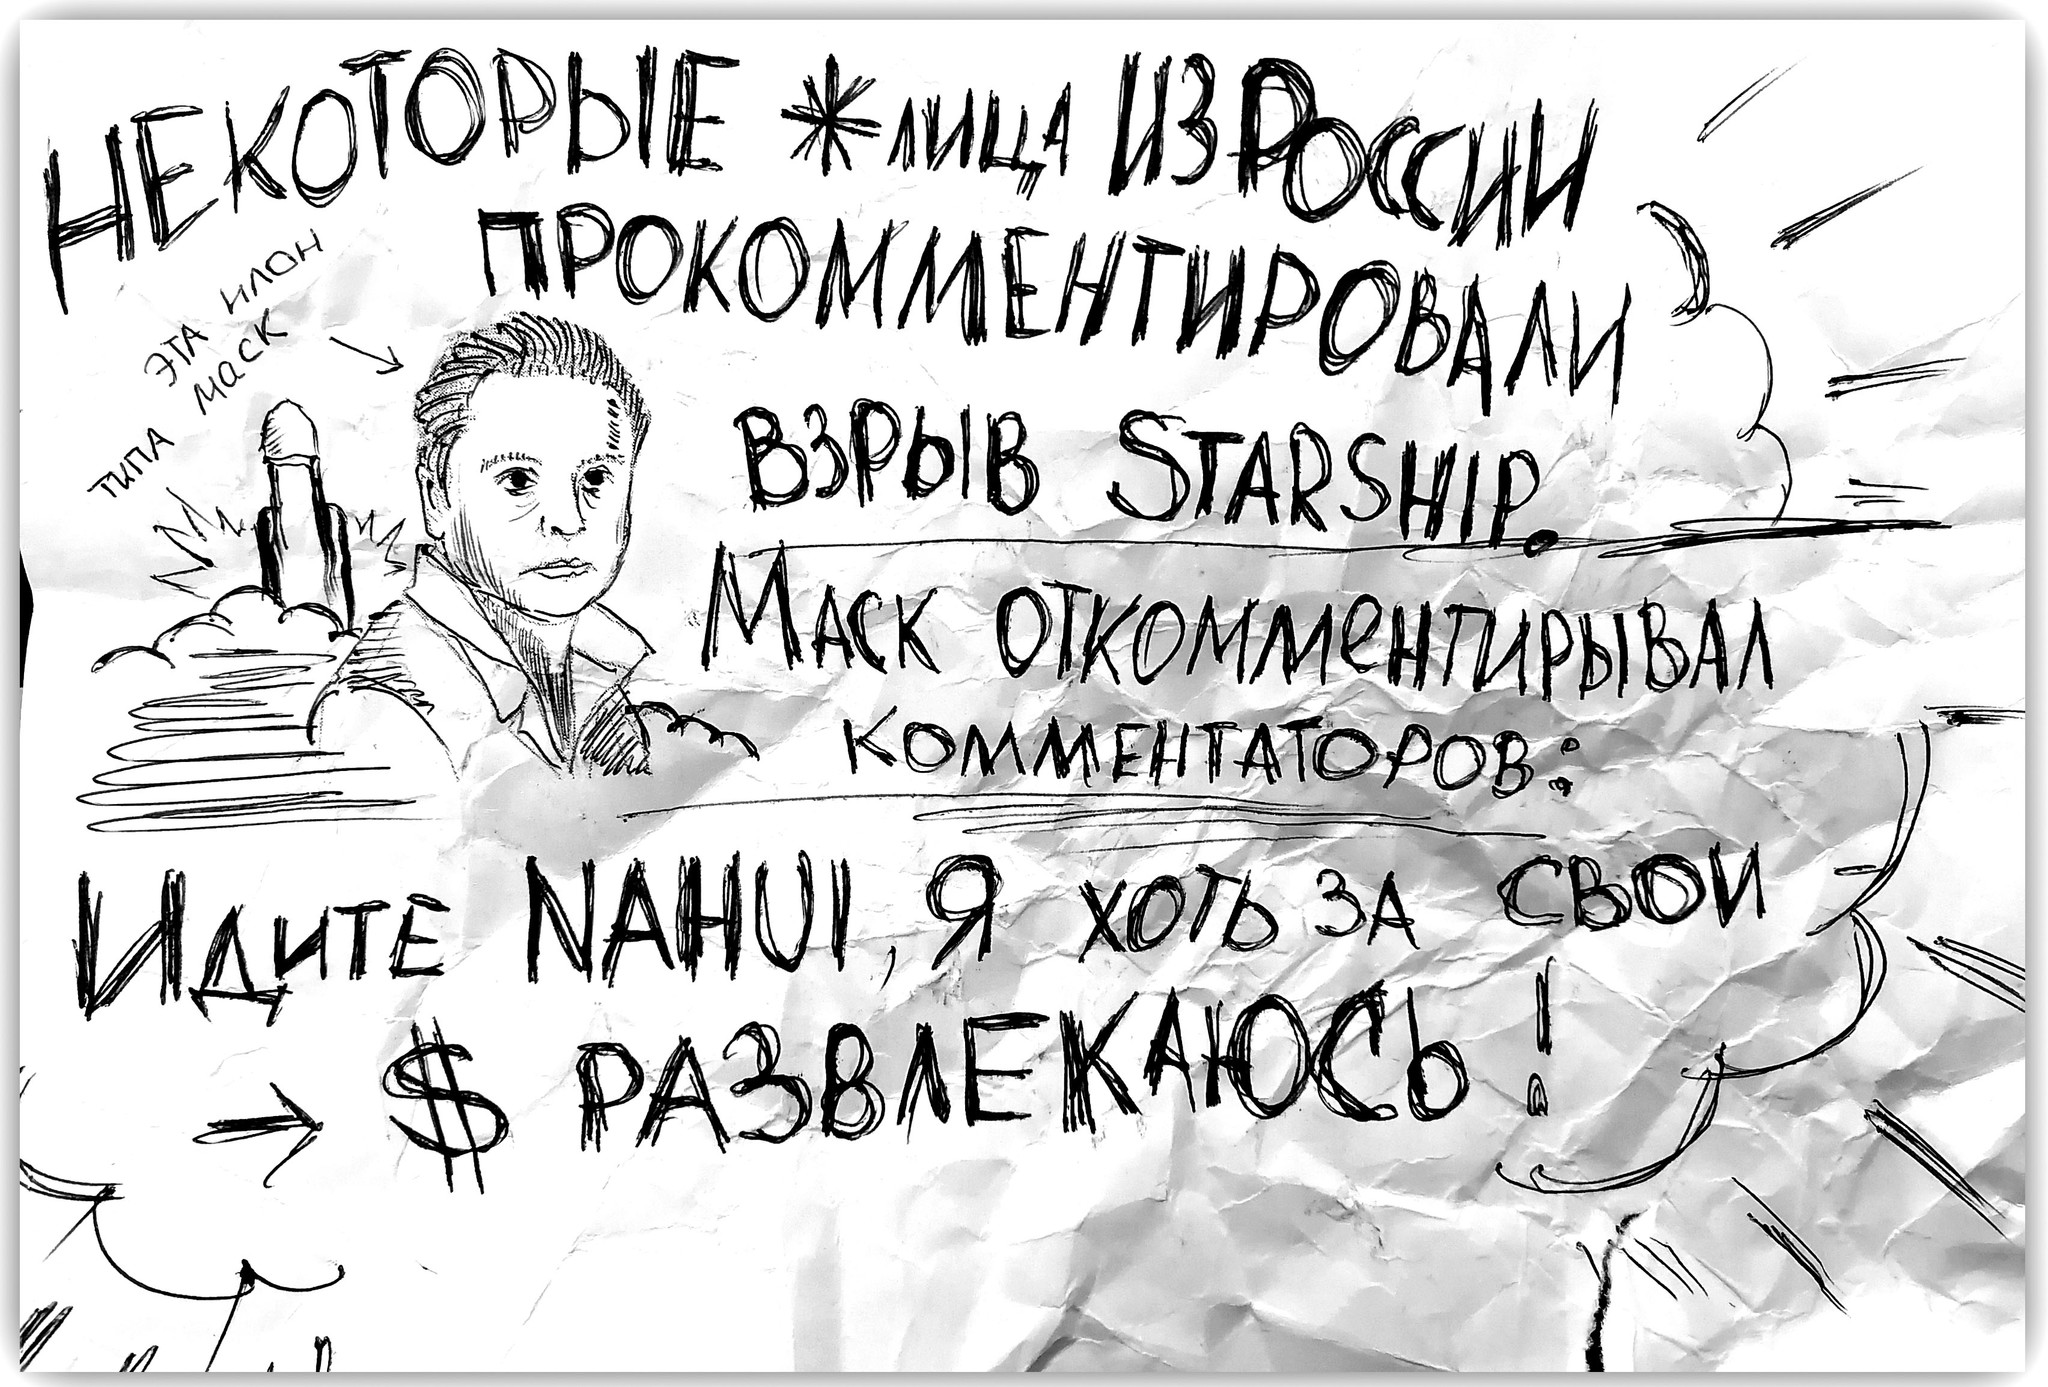 НЕКОТОРЫЕ *ЛИЦА ИЗ РОССИИ
ПРОКОММЕНТИРОВАЛИ
ВЗРЫВ STARSHIP.
ТИПА ЭТА ИЛОН
МАСК
МАСК ОТКОММЕНТИРЫВАЛ
КОММЕНТАТОРОВ:
ИДИТЕ NAHUI, Я ХОТЬ ЗА СВОИ
→ $ РАЗВЛЕКАЮСЬ!